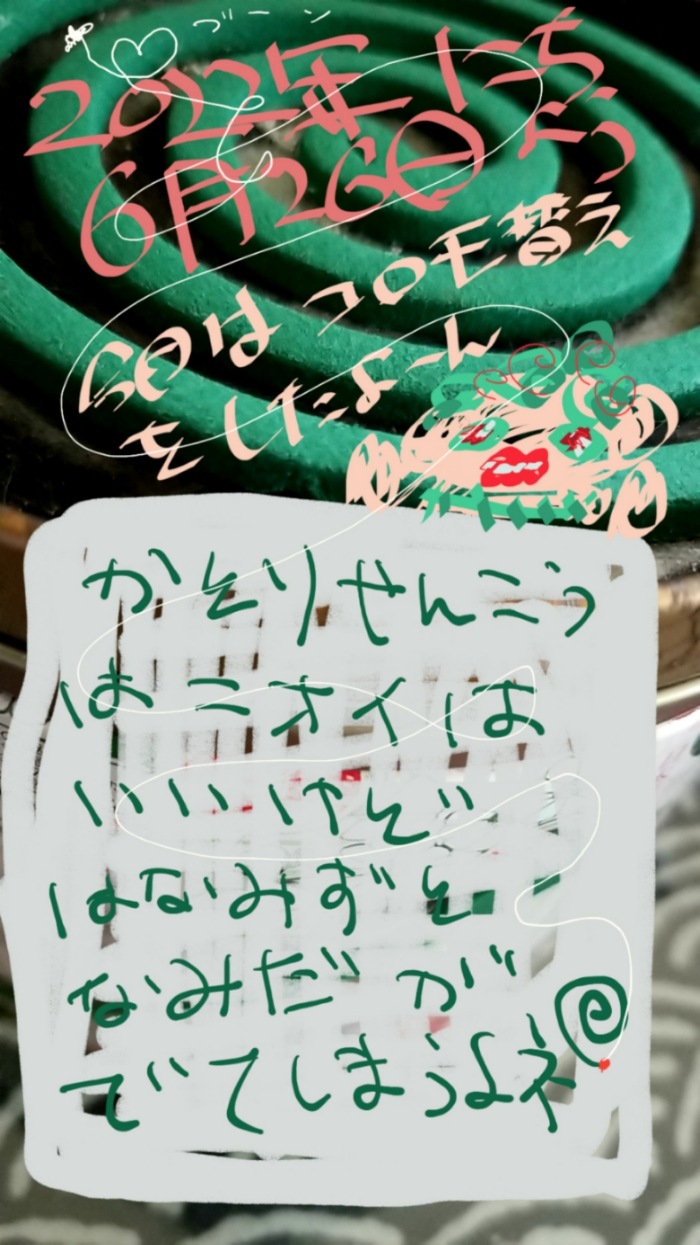 ブーン
2022年 にち
6月26日 どう
今日は コロモ替え
をしたよーん
かとりせんこう
はニオイは
いいけど
はなみずと
なみだ が
でてしまうよネ